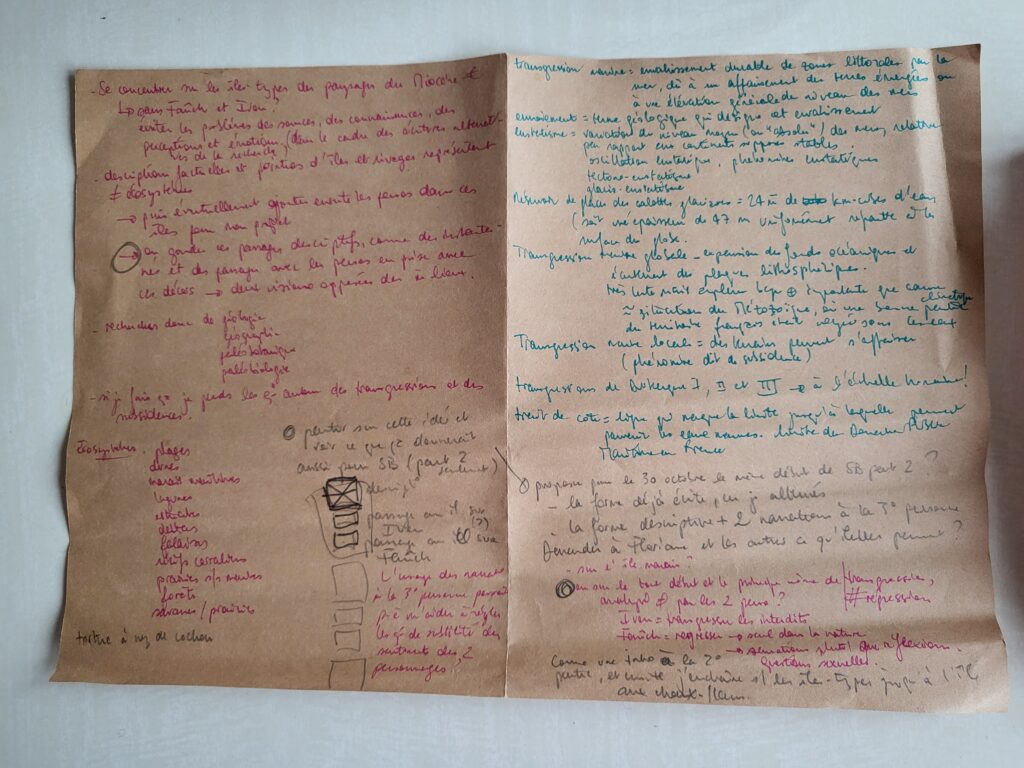 - Se concentrer sur les îles-types des paysages du Miocène
↳ sans Fañch et Ivan
éviter les problèmes des sources, des connaissances, des
perceptions et émotions (dans le cadre des écritures alternati-
ves de la recherche)
- descriptions factuelles et d'îles et rivages représentant
≠ écosystèmes
→ puis éventuellement ajouter ensuite les persos dans ces
îles pour mon projet
→ ou garder ces passages descriptifs, comme des instanta-
nés et des passages avec les persos en prise avec
ces décors → deux visions opposées des lieux.
- recherches donc de géologie
géographie
paléobotanique
paléobiologie
- si je fais ça je perds les autour des transgressions et des
subsidences.
Écosystèmes. plages
dunes
marais maritimes
lagunes
estuaires
deltas
falaises
récifs coralliens
prairies sous marines
forêts
savanes / prairies
tortue à nez de cochon
partir sur cette idée et
voir ce que ça donnerait
aussi pour SB (part 2
seulement)
passage au il sur
Ivan (?)
passage au il sur
Fañch
L'usage des narrat°
à la 3e personne pourrait
m'aider à régler
les de subtilité des
sentiments des 2
personnages ?
transgression marine = envahissement durable de zones littorales par la
mer, dû à un affaissement des terres émergées ou
à une élévation générale du niveau des mers
ennoiement = terme géologique qui désigne cet envahissement
eustatisme = variation du niveau moyen (ou "absolu") des mers relative
par rapport aux continents supposés stables
oscillation eustatique, phénomènes eustatiques
tectono-eustatisme
glacio-eustatisme
Réservoir de glace des calottes glaciaires = 24 M de km-cubes d'eau
(soit une épaisseur de 47 m uniformément répartie à la
surface du globe.
Transgression marine globale - expansion des fonds océaniques et
écartement des plaques lithosphériques.
très lente mais ampleur bcp ⊕ importante que
≈ situation du Mésozoïque, où une bonne partie
du territoire français était submergé sous les eaux
Transgression marine locale = des terrains peuvent s'affaisser
(phénomène dit de subsidence)
transgressions de Dunkerque I, II et III → à l'échelle humaine !
trait de côte = ligne qui marque la limite jusqu'à laquelle peuvent
parvenir les eaux marines. limite du Domaine Public
Maritime en France
proposer pour le 30 octobre le même début de SB part 2 ?
- la forme déjà écrite, un peu allongée
la forme descriptive + 2 narrations à la 3e personne
Demander à Floriane et les autres ce qu'elles pensent ?
- sur l'île marais ?
ou sur le même début et le principe même de transgression,
analysé par les 2 persos ?
# régression
Ivan = transgresser les interdits
Fañch = régresser → seul dans la nature
→ sensations plutôt que réflexions.
questions sexuelles.
Comme une intro à la 2e
partie, et ensuite j'enchaîne sur les îles-types jusqu'à l'île
aux